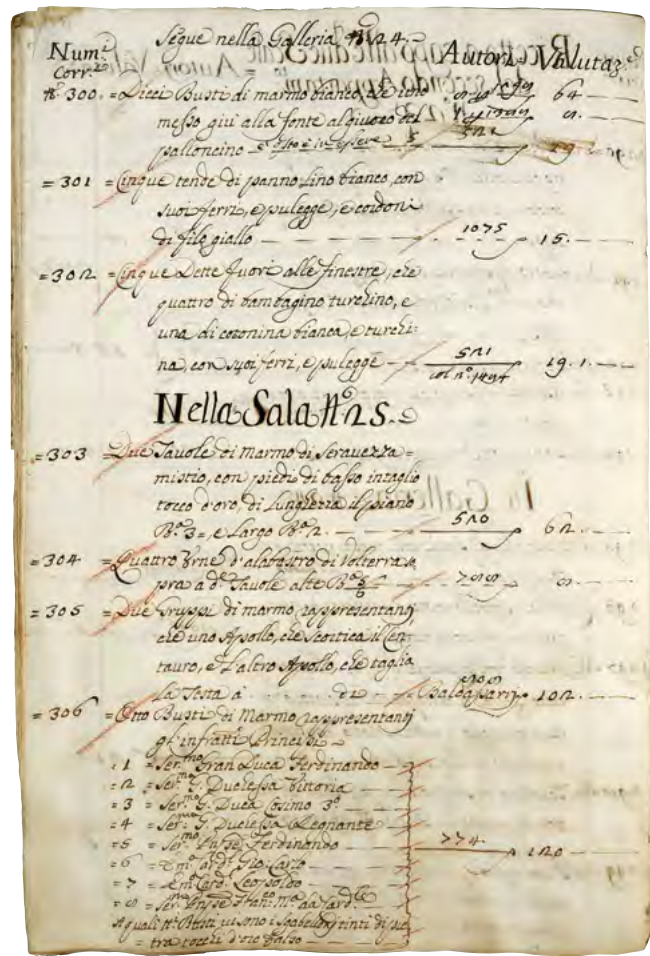 Segue nella Galleria N.º 24.
Num.i Corr.ti Autori Valutaz.ni
N.º 300. = Dieci Busti di marmo bianco, che uno 64
messo giù alla fonte al giuoco del
palloncino
= 301 = Cinque tende di panno lino bianco, con
suoi ferri, e pulegge, e cordoni
di filo giallo 1075 15.
= 302 = Cinque Dette fuori alle finestre, che
quattro di bambagino turchino, e
una di cotonina bianca, e turchi:
na, con suoi ferri, e pulegge 521 19.1.
col n.º 1494
Nella Sala N.º 25.
= 303 = Due Tavole di Marmo di Seravezza
mistio, con piedi di basso intaglio
tocco d'oro, di Lunghezza il piano
B.a 3 =, e Largo B.a 2. 520 62.
= 304 = Quattro Urne d'alabastro di Volterra so
pra a d.e Tavole alte B.a 5/6 788 8.
= 305 = Due Gruppi di marmo, rappresentanti
che uno Apollo, che scortica il Cen
tauro, e L'altro Apollo, che taglia
la Testa a ........ di Baldassarri 102.
= 306 = Otto Busti di Marmo rappresentanti
gl'infratti Principi
: 1 = Ser.mo Gran Duca Ferdinando
: 2 = Ser.ma G. Duchessa Vittoria
: 3 = Ser.mo G. Duca Cosimo 3.º
: 4 = Ser.ma G. Duchessa Regnante
: 5 = Ser.mo Pnṕe Ferdinando 774 120
: 6 = Em.º Card.e Gio: Carlo
: 7 = Em.º Card.e Leopoldo
: 8 = Ser.mo Pnṕe Fran.co M.a da Card.le
A quali N.º Busti vi sono i sgabelloni tinti di pie
= tra tocchi d'oro falso